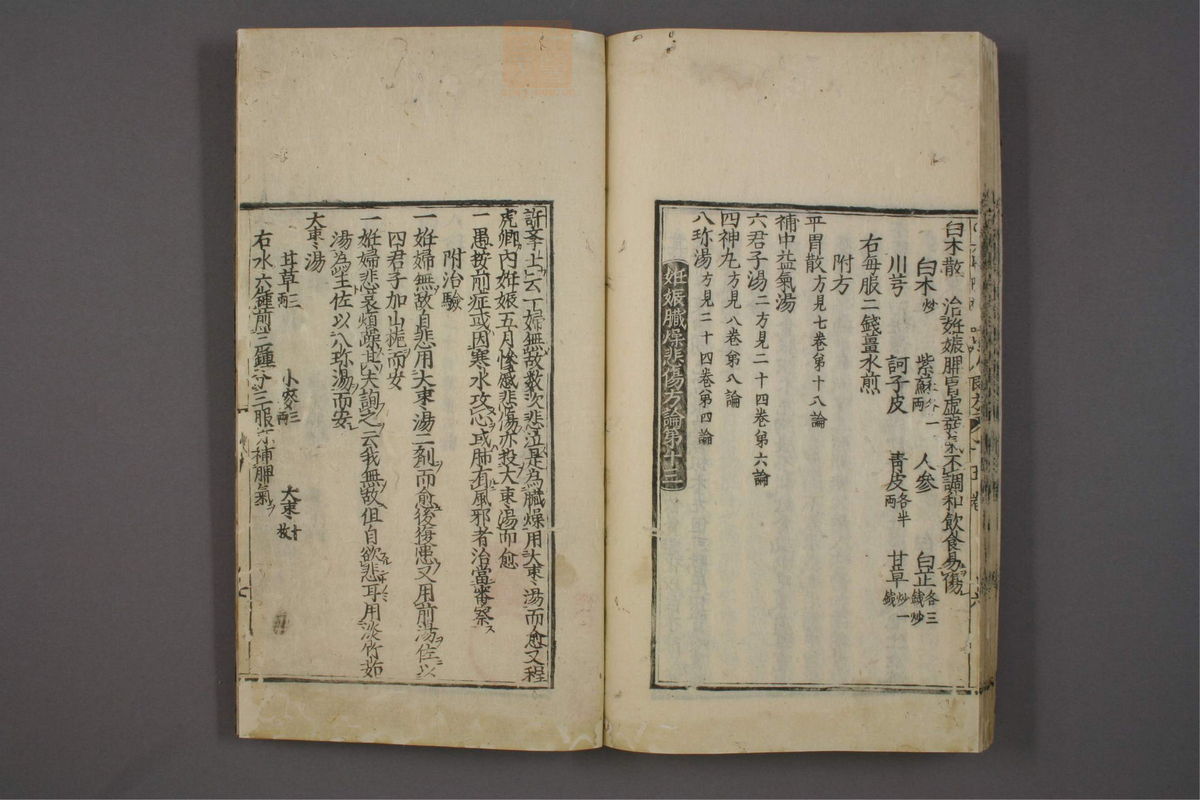 白朮散 治妊娠脾胃虚䔍氣不調和飲食易傷
白朮炒 紫蘇各一兩 人參 白芷各三錢炒
川芎 訶子皮 青皮各半兩 甘草炒一錢
右每服二錢薑水煎
附方
平胃散方見七卷第十八論
補中益氣湯
六君子湯二方見二十四卷第六論
四神丸方見八卷第八論
八珎湯方見二十四卷第四論
妊娠臟燥悲傷方論第十三
許孝士云一婦無故數次悲泣是為臟燥用大棗湯而愈又程
虎卿內妊娠五月慘感悲傷亦投大棗湯而愈
一愚按前症或因寒水攻心或肺有風邪者治當審察
附治驗
一妊婦無故自悲用大棗湯二剤而愈後復患又用前湯佐以
四君子加山梔而安
一妊婦悲哀煩躁其夫詢之云我無故但自欲悲耳用淡竹茹
湯為主佐以八珎湯而安
大棗湯
甘草三兩 小麥三兩 大棗十枚
右水六鍾煎三鍾分三服亦補脾氣